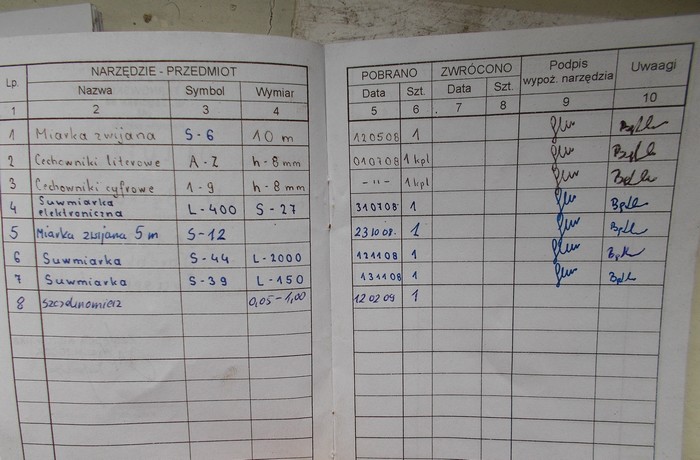 Lp. NARZĘDZIE - PRZEDMIOT POBRANO ZWRÓCONO Podpis wypoż. narzędzia Uwaagi
Nazwa Symbol Wymiar Data Szt. Data Szt.
1 2 3 4 5 6 7 8 9 10
1 Miarka zwijana S-6 10 m 120508 1
2 Cechowniki literowe A-Z h-8mm 010708 1 kpl
3 Cechowniki cyfrowe 1-9 h-8mm -"- 1 kpl
4 Suwmiarka elektroniczna L-400 S-27 310708 1
5 Miarka zwijana 5m S-12 231008. 1
6 Suwmiarka S-44 L-2000 121108 1
7 Suwmiarka S-39 L-150 131108 1
8 Szczelinomierz 0,05-1,00 120209 1